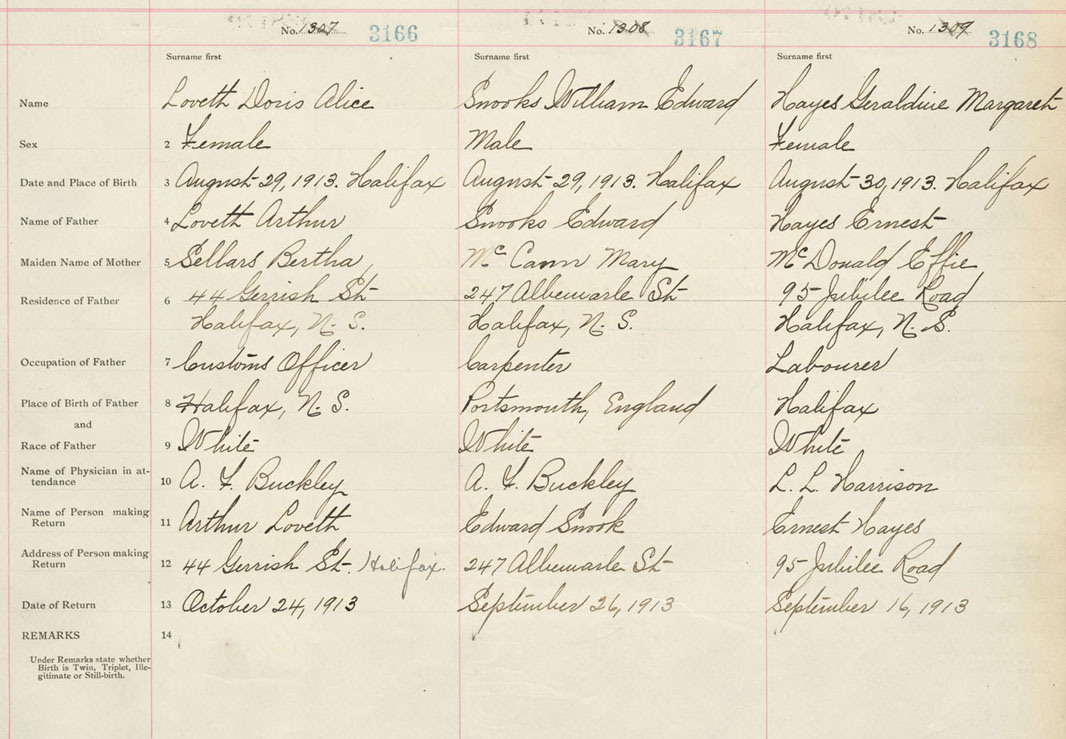 No. 1307 3166 No. 1308 3167 No. 1309 3168
Surname first Surname first Surname first
Name Lovett Doris Alice Snooks William Edward Hayes Geraldine Margaret
Sex 2 Female Male Female
Date and Place of Birth 3 August 29, 1913. Halifax August 29, 1913. Halifax August 30, 1913. Halifax
Name of Father 4 Lovett Arthur Snooks Edward Hayes Ernest
Maiden Name of Mother 5 Sellars Bertha McCann Mary McDonald Effie
Residence of Father 6 44 Gerrish St 247 Albemarle St 95 Jubilee Road
Halifax, N. S. Halifax, N. S. Halifax, N. S.
Occupation of Father 7 Customs Officer Carpenter Labourer
Place of Birth of Father 8 Halifax, N. S. Portsmouth, England Halifax
and
Race of Father 9 White White White
Name of Physician in at-
tendance 10 A. F. Buckley A. F. Buckley L. L. Harrison
Name of Person making
Return 11 Arthur Lovett Edward Snook Ernest Hayes
Address of Person making
Return 12 44 Gerrish St. Halifax. 247 Albemarle St 95 Jubilee Road
Date of Return 13 October 24, 1913 September 26, 1913 September 16, 1913
REMARKS 14
Under Remarks state whether
Birth is Twin, Triplet, Ille-
gitimate or Still-birth.